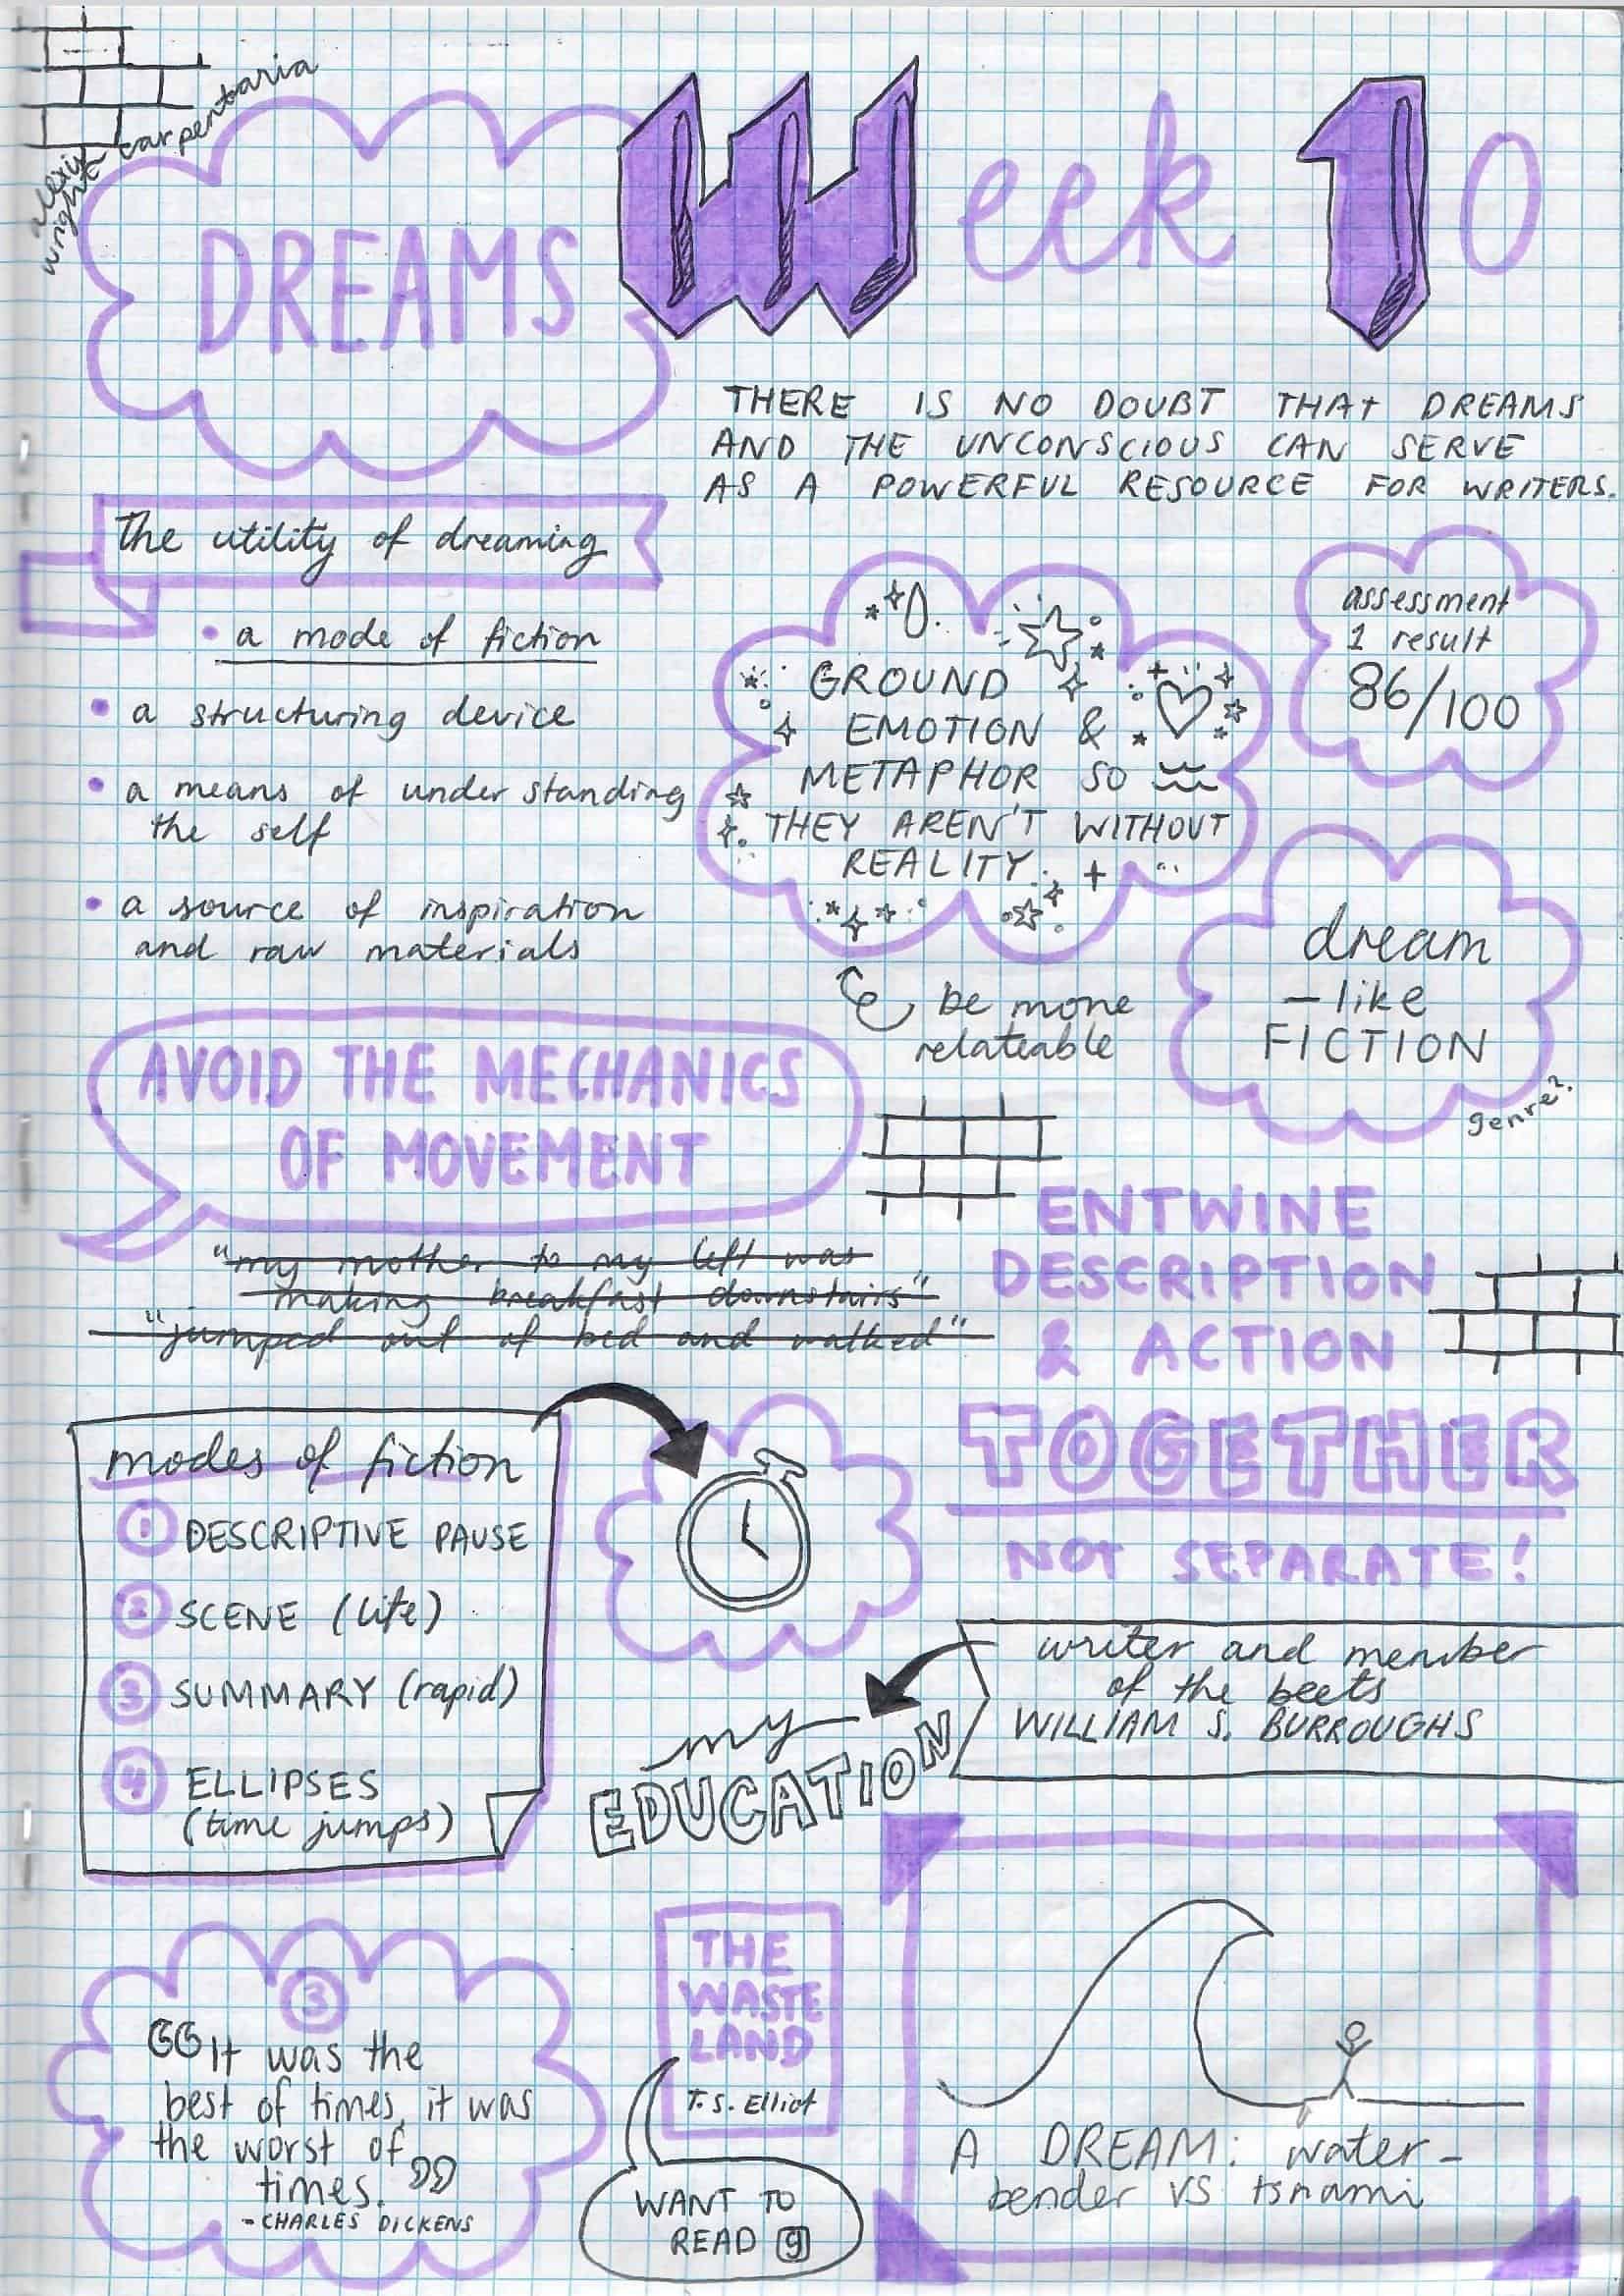 alexis wright carpentaria
Week 10
DREAMS
THERE IS NO DOUBT THAT DREAMS
AND THE UNCONSCIOUS CAN SERVE
AS A POWERFUL RESOURCE FOR WRITERS.
the utility of dreaming
• a mode of fiction
• a structuring device
• a means of understanding
the self
• a source of inspiration
and raw materials
GROUND
EMOTION &
METAPHOR SO
THEY AREN'T WITHOUT
REALITY.
be more
relateable
assessment
1 result
86/100
dream
-like
FICTION
genre?
AVOID THE MECHANICS
OF MOVEMENT
"my mother to my left was
making breakfast downstairs"
"jumped out of bed and walked"
ENTWINE
DESCRIPTION
& ACTION
TOGETHER
NOT SEPARATE!
modes of fiction
1 DESCRIPTIVE PAUSE
2 SCENE (life)
3 SUMMARY (rapid)
4 ELLIPSES
(time jumps)
writer and member
of the beets
WILLIAM S. BURROUGHS
my
EDUCATION
3
"It was the
best of times, it was
the worst of
times."
-CHARLES DICKENS
THE
WASTE
LAND
T. S. Elliot
WANT TO
READ g
A DREAM: water-
bender vs tsnami